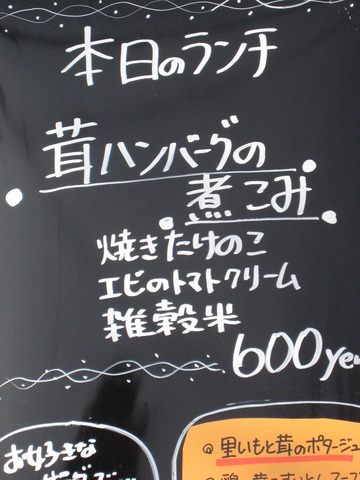 本日のランチ
茸ハンバーグの
煮こみ
焼きたけのこ
エビのトマトクリーム
雑穀米
600yen
お好きな
◎里いもと茸のポタージュ